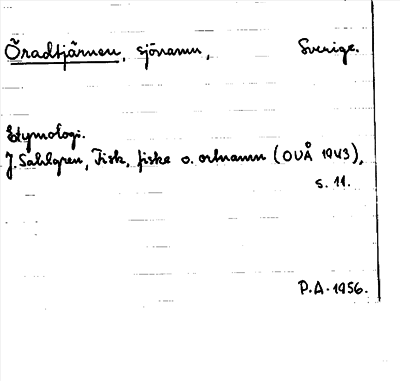 Öradtjärnen, sjönamn, Sverige.
Etymologi.
J. Sahlgren, Fisk, fiske o. ortnamn (OUÅ 1943),
s. 11.
P.A. 1956.